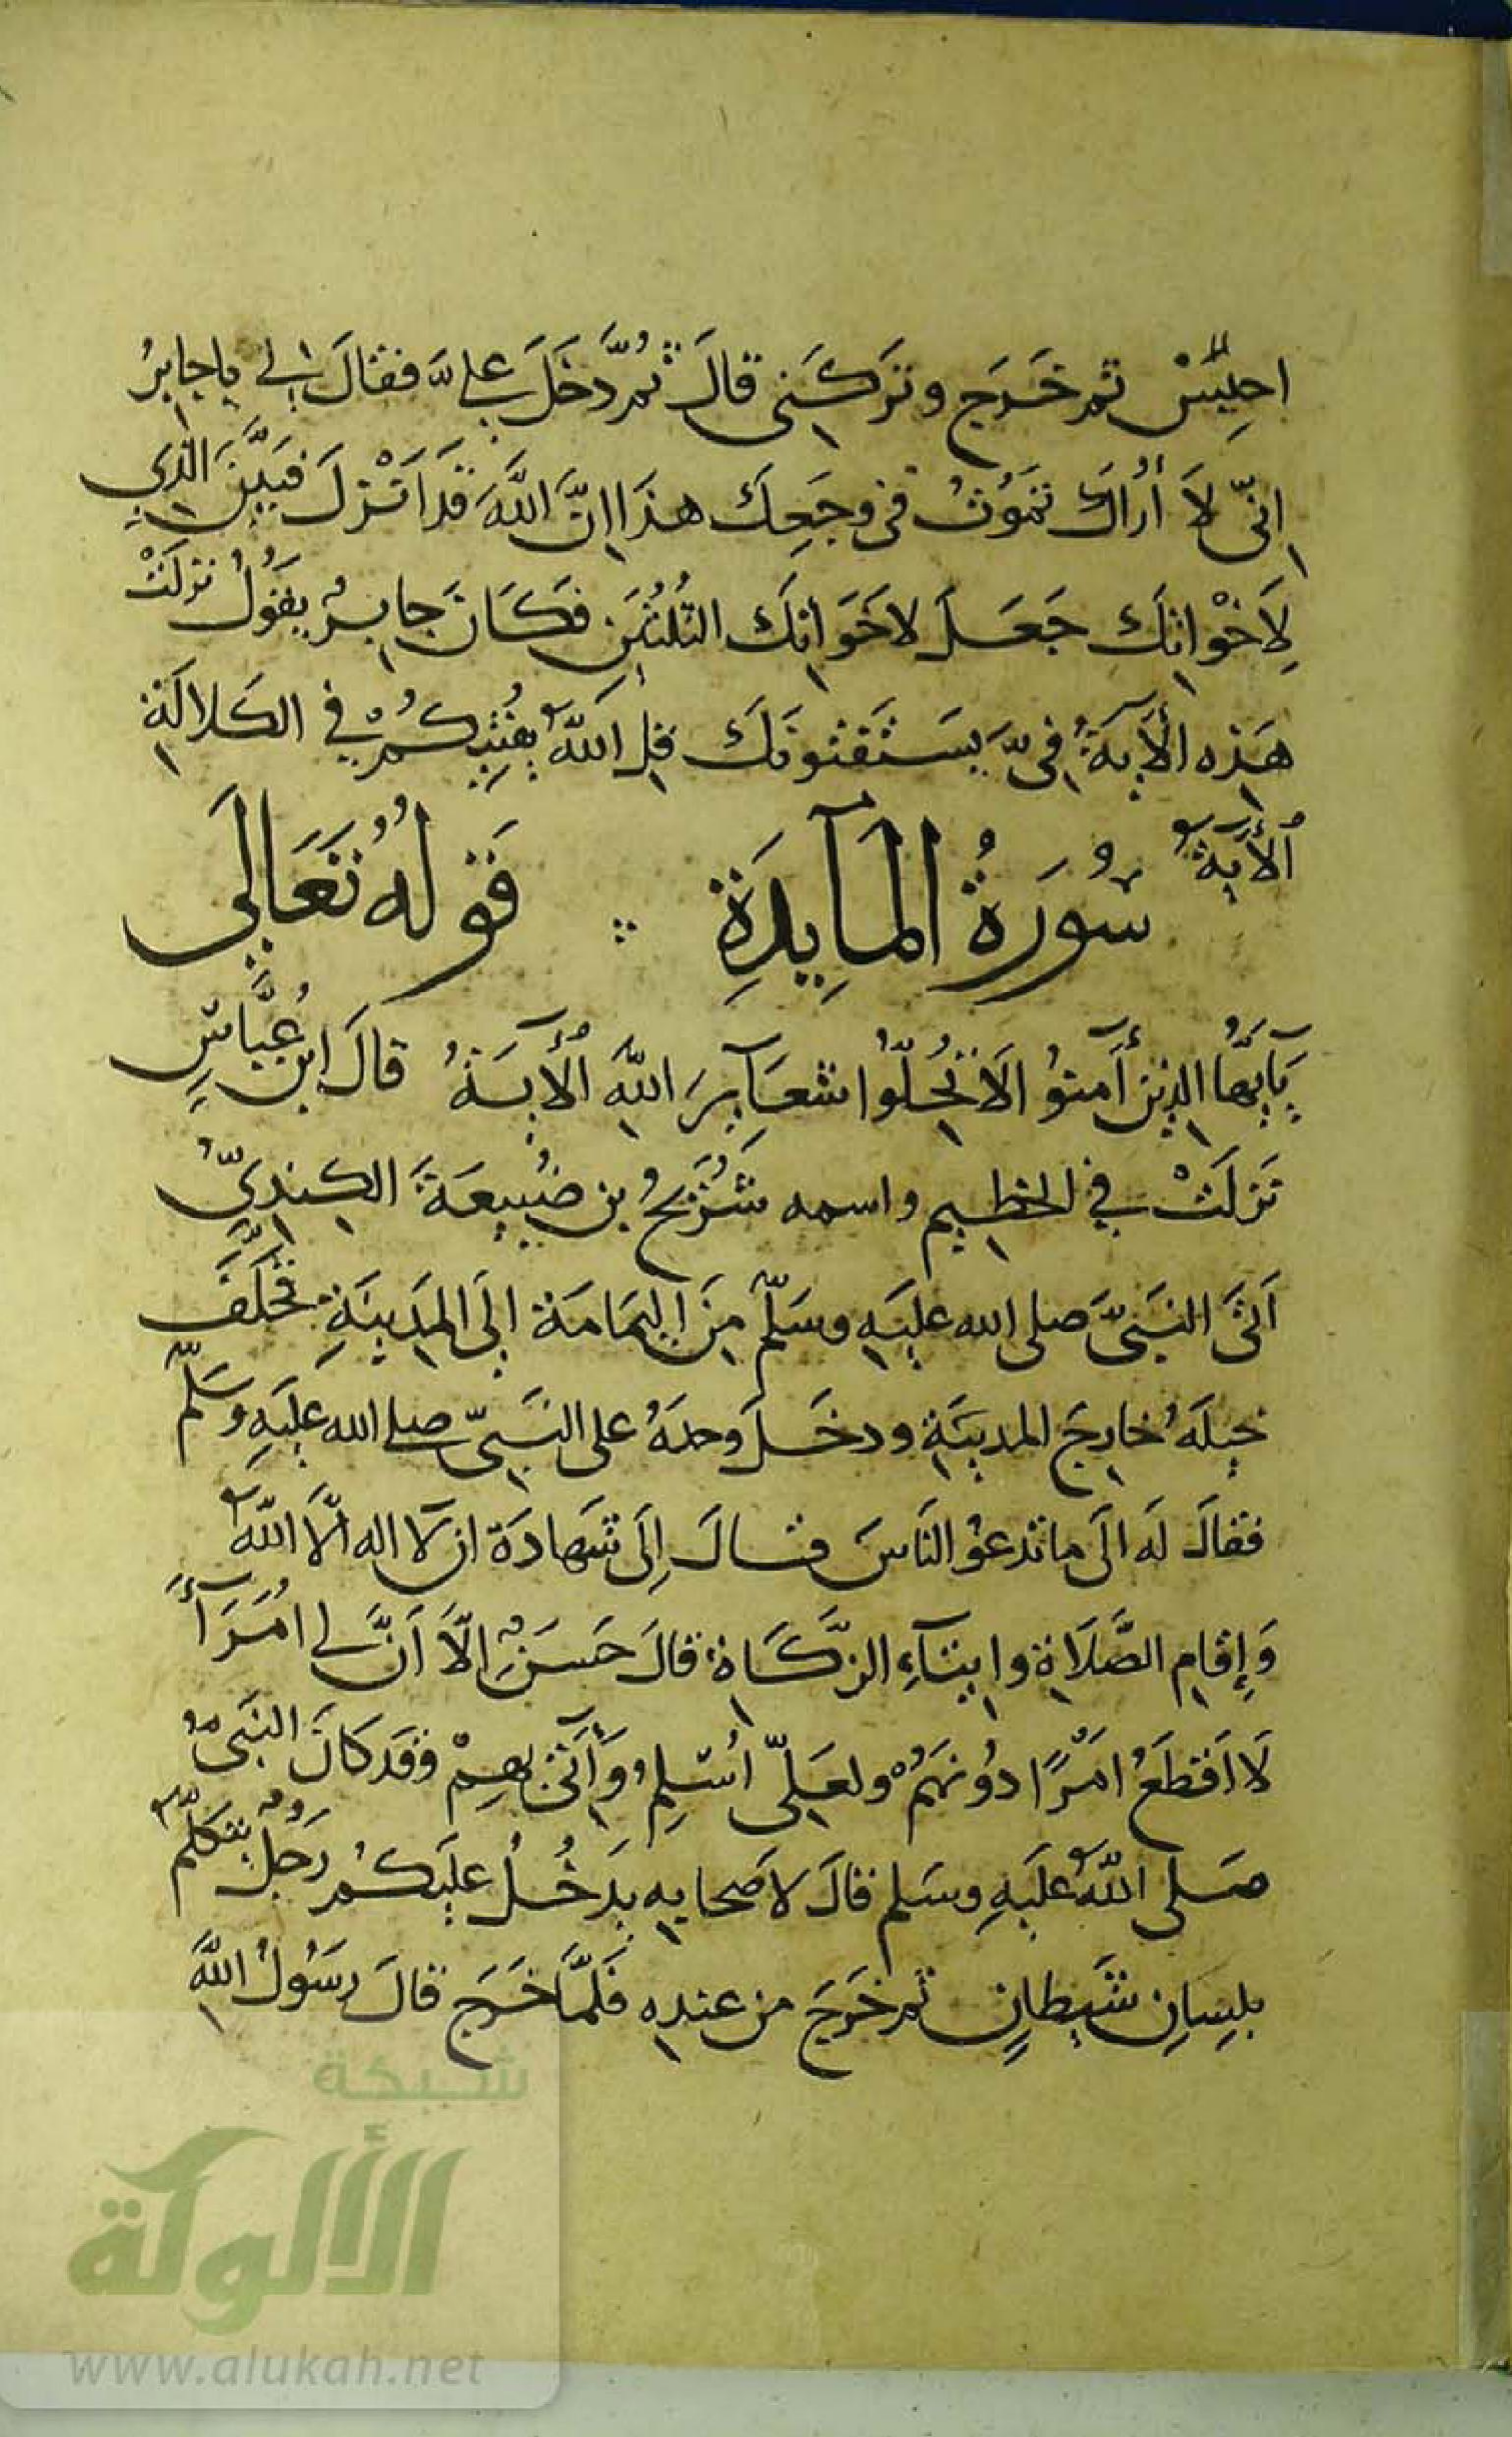 احبِسْ ثم خَرَج وتَرَكَنِي قالَ ثُمَّ دَخَلَ عليَّ فقالَ لي يا جابِرُ
إنّي لَا أُرَاكَ تَمُوتُ في وجَعِكَ هذَا إنَّ اللَّهَ قَد أَنْزلَ فَبيَّنَ الذِي
لِأَخْوَاتِكَ جَعَلَ لأَخَوَاتِكَ الثلُثَينِ فكَانَ جابرٌ يقُولُ نزلَتْ
هَذِه الأيَةُ فيَّ يَستَفتونَكَ قلِ اللَّهُ يُفتِيكُمْ في الكَلالَةِ
الأيَة سُورَةُ المآيِدَةِ قولهُ تعَالَى
يَآيُّهَا الذِين أَمنوُا لَا تُحِلُّوا شعَآيِرَ اللَّهِ الأيَةُ قالَ ابن عبَّاسٍ
نَزلَتْ في الحطِيم واسمه شُرَيحُ بن ضُبيعَةَ الكِنْدِيُّ
أتَى النبَيَّ صلى الله عليَهِ وسَلّم مِنَ اليَمَامَة إلَى المَدِينَةِ فَخَلَّفَ
خيلَهُ خارِجَ المدينَةِ ودخَلَ وحدَهُ على النَبيّ صلى الله عليَهِ وسَلّم
فقالَ لَه الَى ما تدعُو النَاسَ فقالَ إلَى شَهادَة ان لَا اله الَّا اللَّهُ
وَإقامِ الصَّلَاةِ وايتَآءِ الزَّكَاةِ قالَ حَسَنٌ الَّا أنَّ لي أُمَرَآءَ
لَا أقطَعُ امْرًا دُونَهُمْ ولعَلّي أُسْلِمُ وَآتي بهِمْ وقَد كَانَ النبَيُّ
صَلى اللَّهُ عليَهِ وسَلم قالَ لاَصحابِهِ يَدخُلُ عليَكُم رَجُلٌ يتكَلّمُ
بلِسِانِ شَيطانٍ ثم خَرَجَ من عندِهِ فَلمَّا خَرَج قالَ رسَوُلُ اللَّهِ
شبكة
الألوكة
www.alukah.net